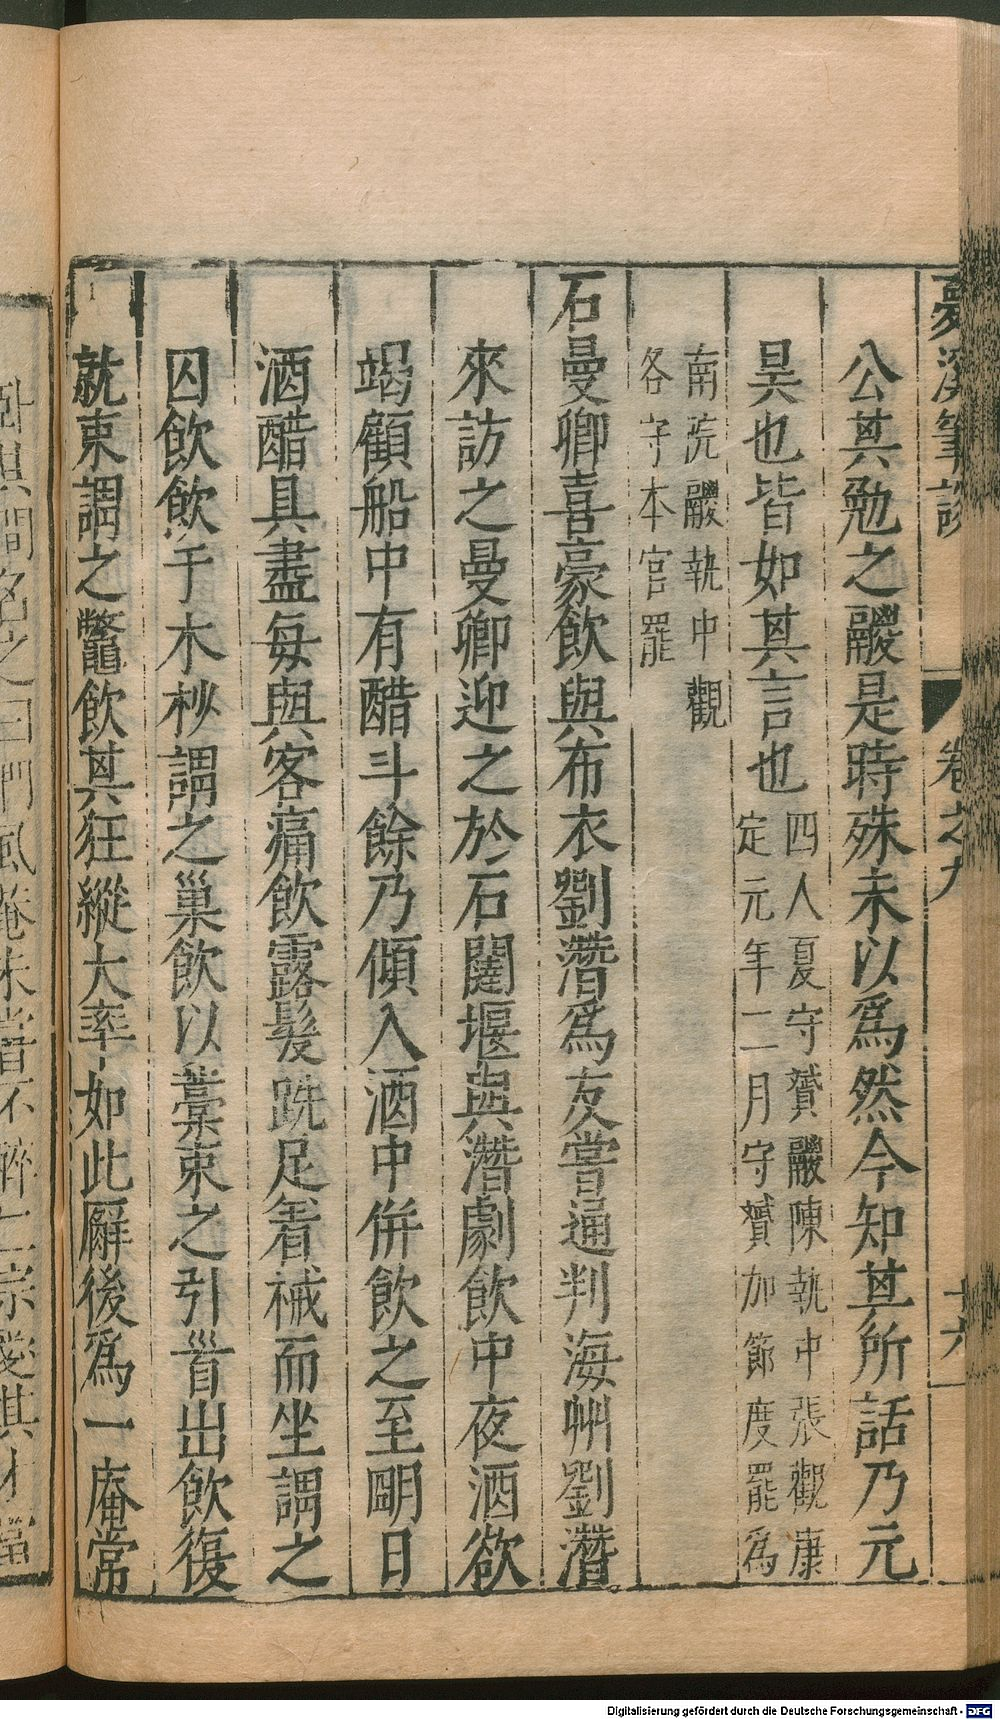 夢溪筆談 卷之九 十六
公其勉之鬷是時殊未以爲然今知其所話乃元
昊也皆如其言也四人夏守贇鬷陳執中張觀康
定元年二月守贇加節度罷爲
南院鬷執中觀
各守本官罷
石曼卿喜豪飲與布衣劉潛爲友嘗通判海州劉潛
來訪之曼卿迎之於石闥堰與潛劇飲中夜酒欲
竭顧船中有醋斗餘乃傾入酒中併飲之至明日
酒醋具盡每與客痛飲露髮跣足著械而坐謂之
囚飲飲于木杪謂之巢飲以藁束之引首出飲復
就束謂之鱉飲其狂縱大率如此廨後爲一庵常
臥其間名之曰捫蝨庵未嘗不醉仁宗愛其才嘗
Digitalisierung gefördert durch die Deutsche Forschungsgemeinschaft - DFG